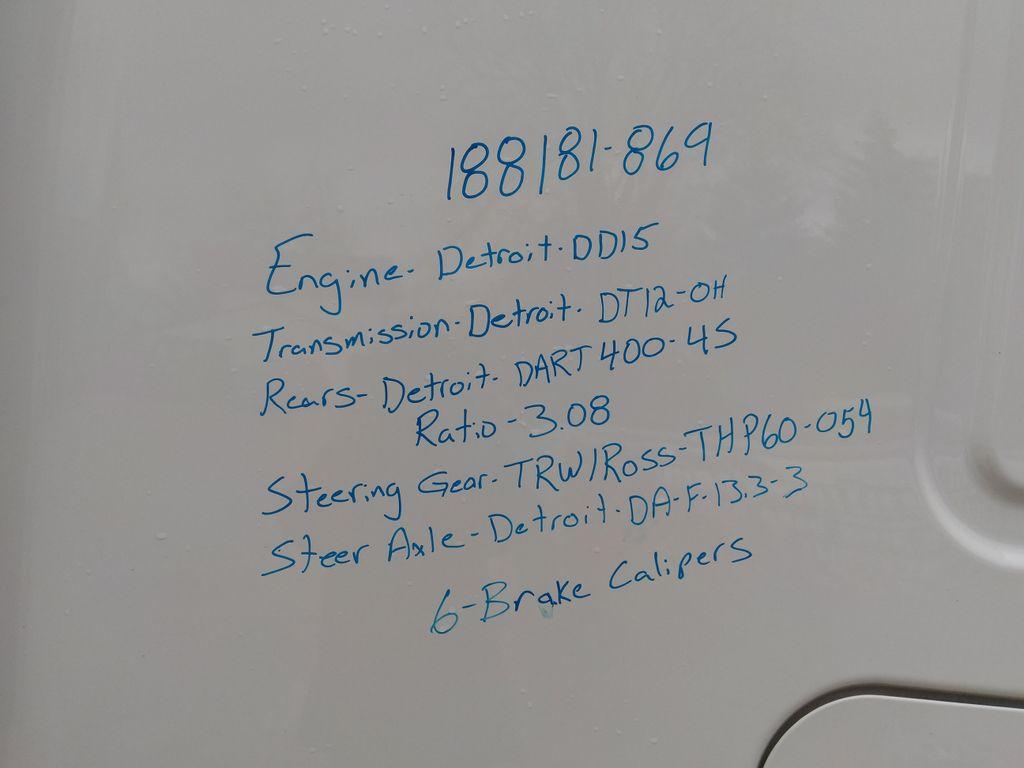 188181-869
Engine- Detroit-DD15
Transmission-Detroit- DT12-OH
Rears-Detroit-DART 400-4S
Ratio-3.08
Steering Gear-TRW/Ross-THP60-054
Steer Axle-Detroit-DA-F-13.3-3
6-Brake Calipers